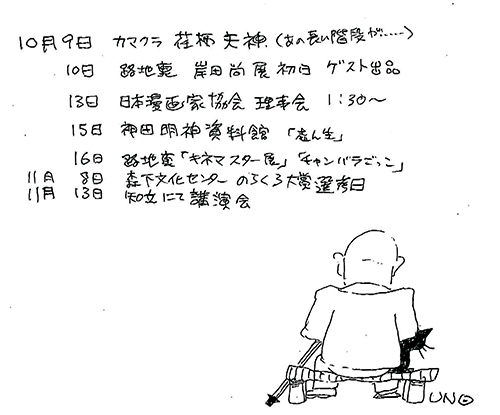 10月9日 カマクラ 荏柄天神 (あの長い階段が……)
10日 路地裏 岸田尚展初日 ゲスト出品
13日 日本漫画家協会 理事会 1:30〜
15日 神田明神資料館 「志ん生」
16日 路地裏「キネマスター展」「チャンバラごっこ」
11月 8日 森下文化センター のらくろ大賞選考日
11月 13日 知立にて講演会
UNO